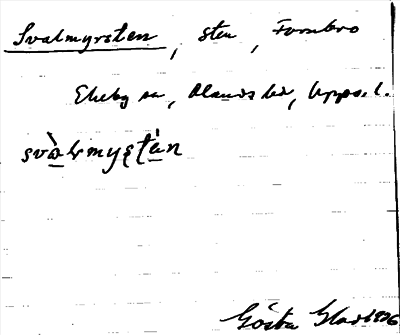 Svalmyrsten, sten, Fornbro
Ekeby sn, Olands hd, Upps. l.
svàlmystàn
Gösta Glad 1926